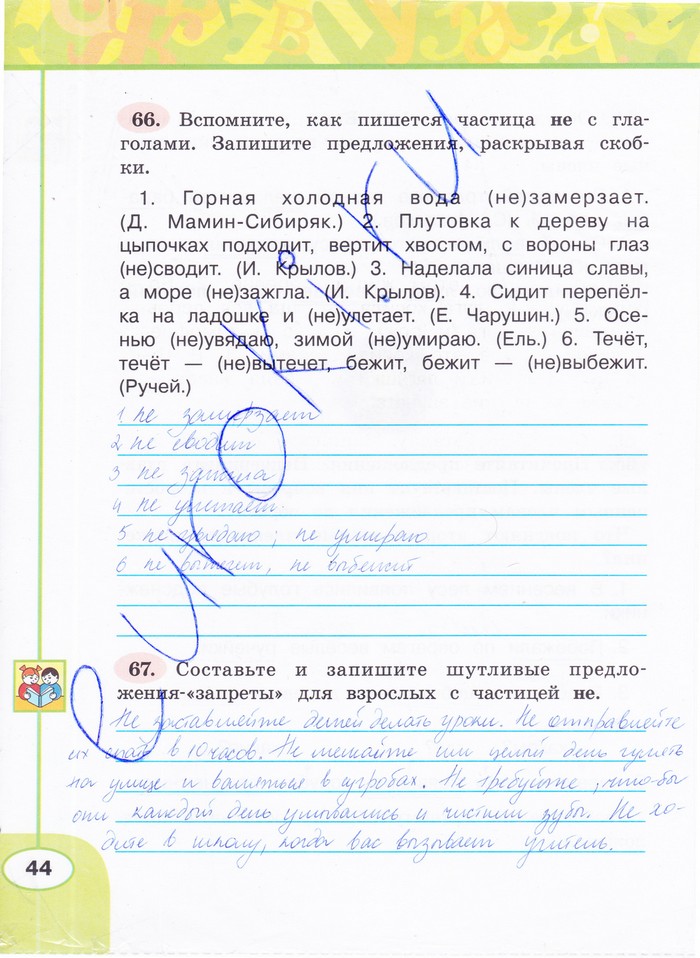 66. Вспомните, как пишется частица не с гла-
голами. Запишите предложения, раскрывая скоб-
ки.
1. Горная холодная вода (не)замерзает.
(Д. Мамин-Сибиряк.) 2. Плутовка к дереву на
цыпочках подходит, вертит хвостом, с вороны глаз
(не)сводит. (И. Крылов.) 3. Наделала синица славы,
а море (не)зажгла. (И. Крылов). 4. Сидит перепёл-
ка на ладошке и (не)улетает. (Е. Чарушин.) 5. Осе-
нью (не)увядаю, зимой (не)умираю. (Ель.) 6. Течёт,
течёт — (не)вытечет, бежит, бежит — (не)выбежит.
(Ручей.)
1 не замерзает
2 не сводит
3 не зажгла
4 не улетает.
5 не увядаю; не умираю
6 не вытечет, не выбежит
67. Составьте и запишите шутливые предло-
жения-«запреты» для взрослых с частицей не.
Не заставляйте детей делать уроки. Не отправляйте
их спать в 10 часов. Не мешайте им целый день гулять
на улице и валяться в сугробах. Не требуйте, что-бы
они каждый день умывались и чистили зубы. Не хо-
дите в школу, когда вас вызывает учитель.
44